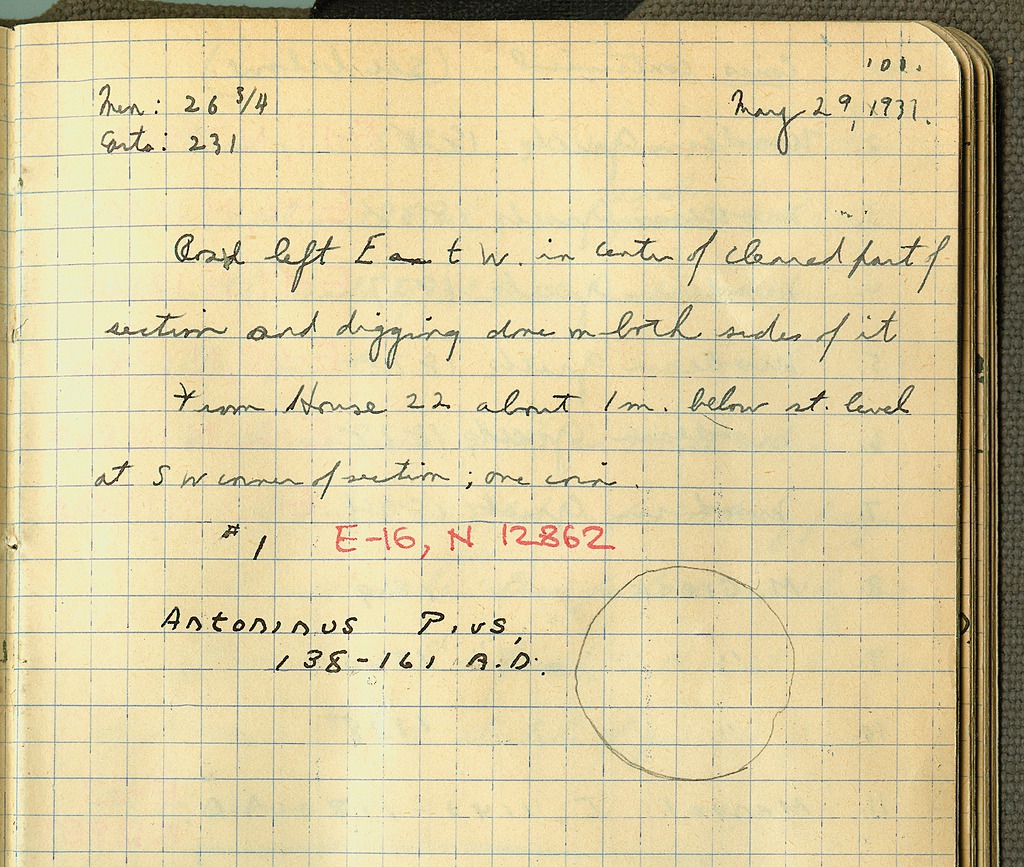 101.
Men: 26 3/4
May 29, 1931.
Carts: 231
Road left E an t W. in center of cleared part of
section and digging done on both sides of it
From House 22 about 1 m. below st. level
at SW corner of section; one coin.
#1 E-16, N 12862
Antoninus Pius,
138-161 A.D.